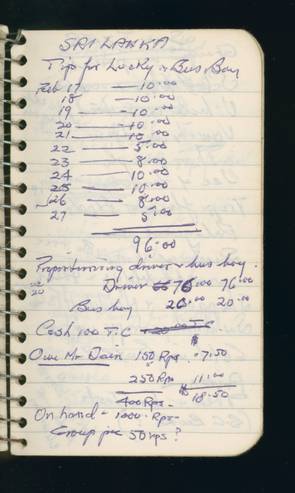 SRI LANKA
Tips for Lucky & Bus Boy
Feb 17 — 10.00
18 — 10.00
19 — 10.00
20 — 10.00
21 — 10.00
22 — 5.00
23 — 8.00
24 — 10.00
25 — 10.00
26 — 8.00
27 — 5.00
96.00
Proportioning driver & bus boy.
Driver 76.00 76.00
Bus boy 20.00 20.00
Cash 100 T.C
Owe Mr Jain 150 Rps. $7.50
250 Rps 11.00
400 Rps. $18.50
On hand - 1000. Rps-
Group pic 50 rps?